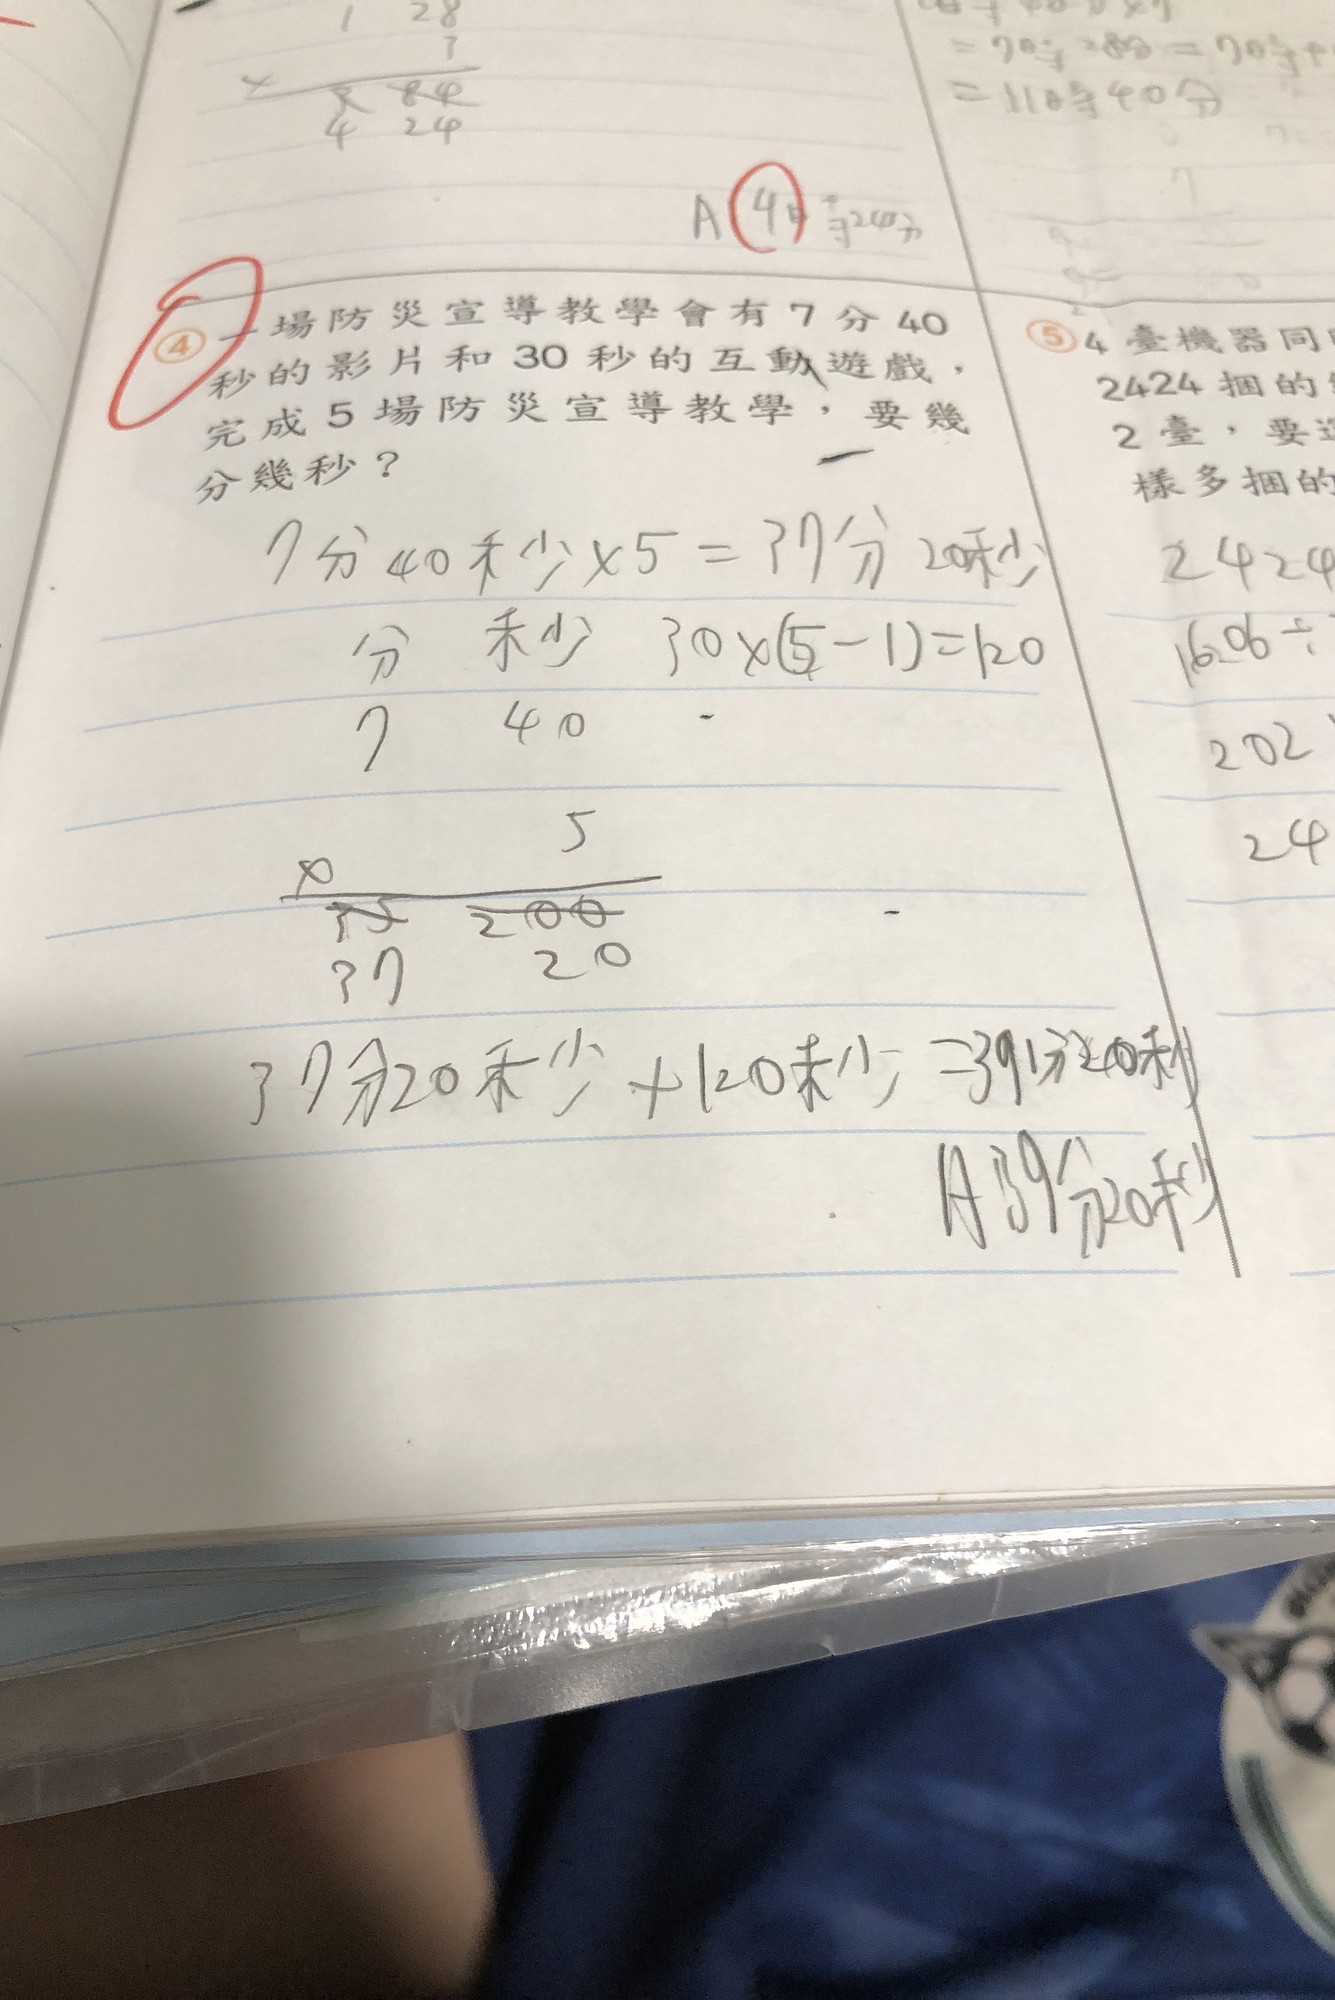 1 28
3
×
3 84
4 24
A 4時24分
= 11時40分
④ 一場防災宣導教學會有7分40
秒的影片和30秒的互動遊戲，
完成5場防災宣導教學，要幾
分幾秒？
7分40秒×5=37分20秒
分 秒 30×(5-1)=120
7 40
5
×
35 200
37 20
37分20秒+120秒=39分20秒
A39分20秒
⑤ 4臺機器同
2424捆的
2臺，要
樣多捆的
2424
1606÷
202
24